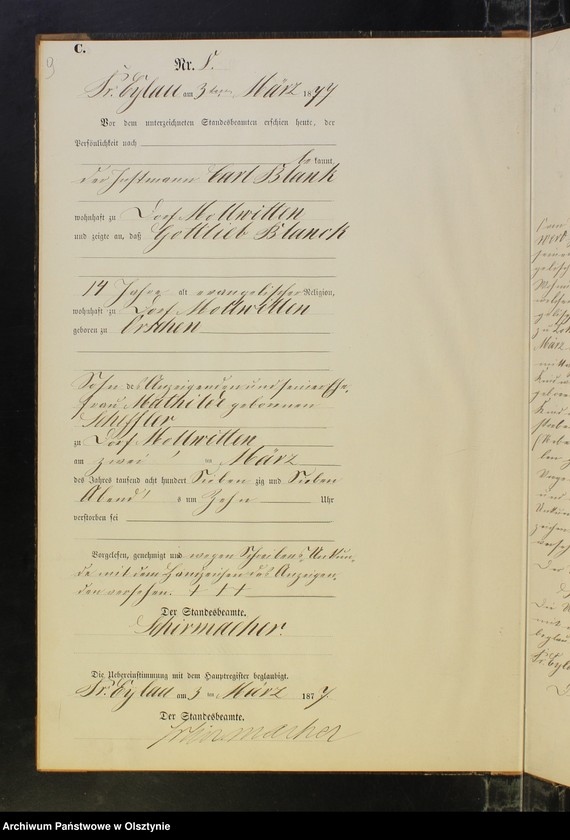 C.
9
Nr. 8.
Pr. Eylau am 3 ten März 1877
Vor dem unterzeichneten Standesbeamten erschien heute, der
Persönlichkeit nach
be kannt,
der Instmann Carl Blank
wohnhaft zu Dorf Mollwitten
und zeigte an, daß Gottlieb Blanck
14 Jahre alt evangelischer Religion,
wohnhaft zu Dorf Mollwitten
geboren zu
Sohn des Anzeigenden und seiner Ehe-
frau Mathilde geborenen
Scheffler
zu Dorf Mollwitten
am zwei ten März
des Jahres tausend acht hundert Sieben zig und Sieben
Abend s um Zehn Uhr
verstorben sei
Vorgelesen, genehmigt und wegen Schreibens Unkun-
de mit dem Handzeichen des Anzeigen-
den versehen. +++
Der Standesbeamte.
Schirmacher.
Die Uebereinstimmung mit dem Hauptregister beglaubigt.
Pr. Eylau am 3 ten März 1877.
Der Standesbeamte.
Schirmacher
Archiwum Państwowe w Olsztynie